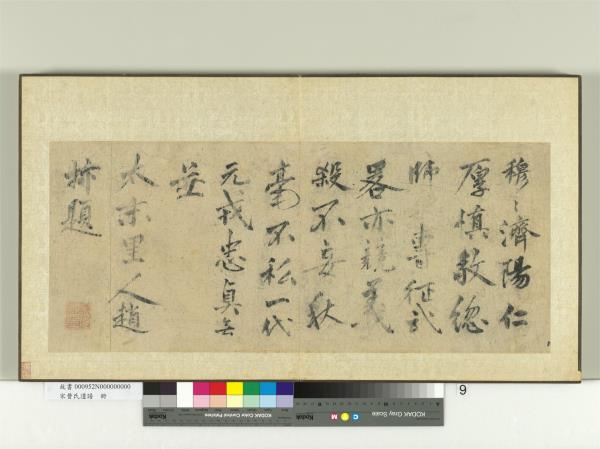 穆〻濟陽仁
厚慎敎總
師專征武
畧亦競義
殺不妄秋
毫不私一代
元戎忠貞無
並
太末里人趙
抃題
故書 000952N000000000
KODAK Color Control Patches
KODAK Gray Scale
C Y M
A
9